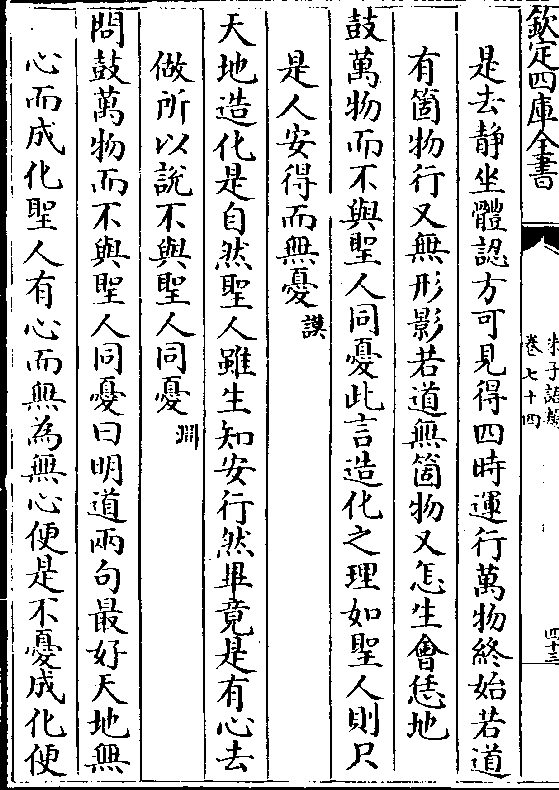 欽定四庫全書
朱子語類
卷七十四
四十三
是去静坐體認方可見得四時運行萬物終始若道
有箇物行又無形影若道無箇物又怎生會恁地
鼓萬物而不與聖人同憂此言造化之理如聖人則只
是人安得而無憂謨
天地造化是自然聖人雖生知安行然畢竟是有心去
做所以說不與聖人同憂淵
問鼓萬物而不與聖人同憂曰明道兩句最好天地無
心而成化聖人有心而無為無心便是不憂成化便